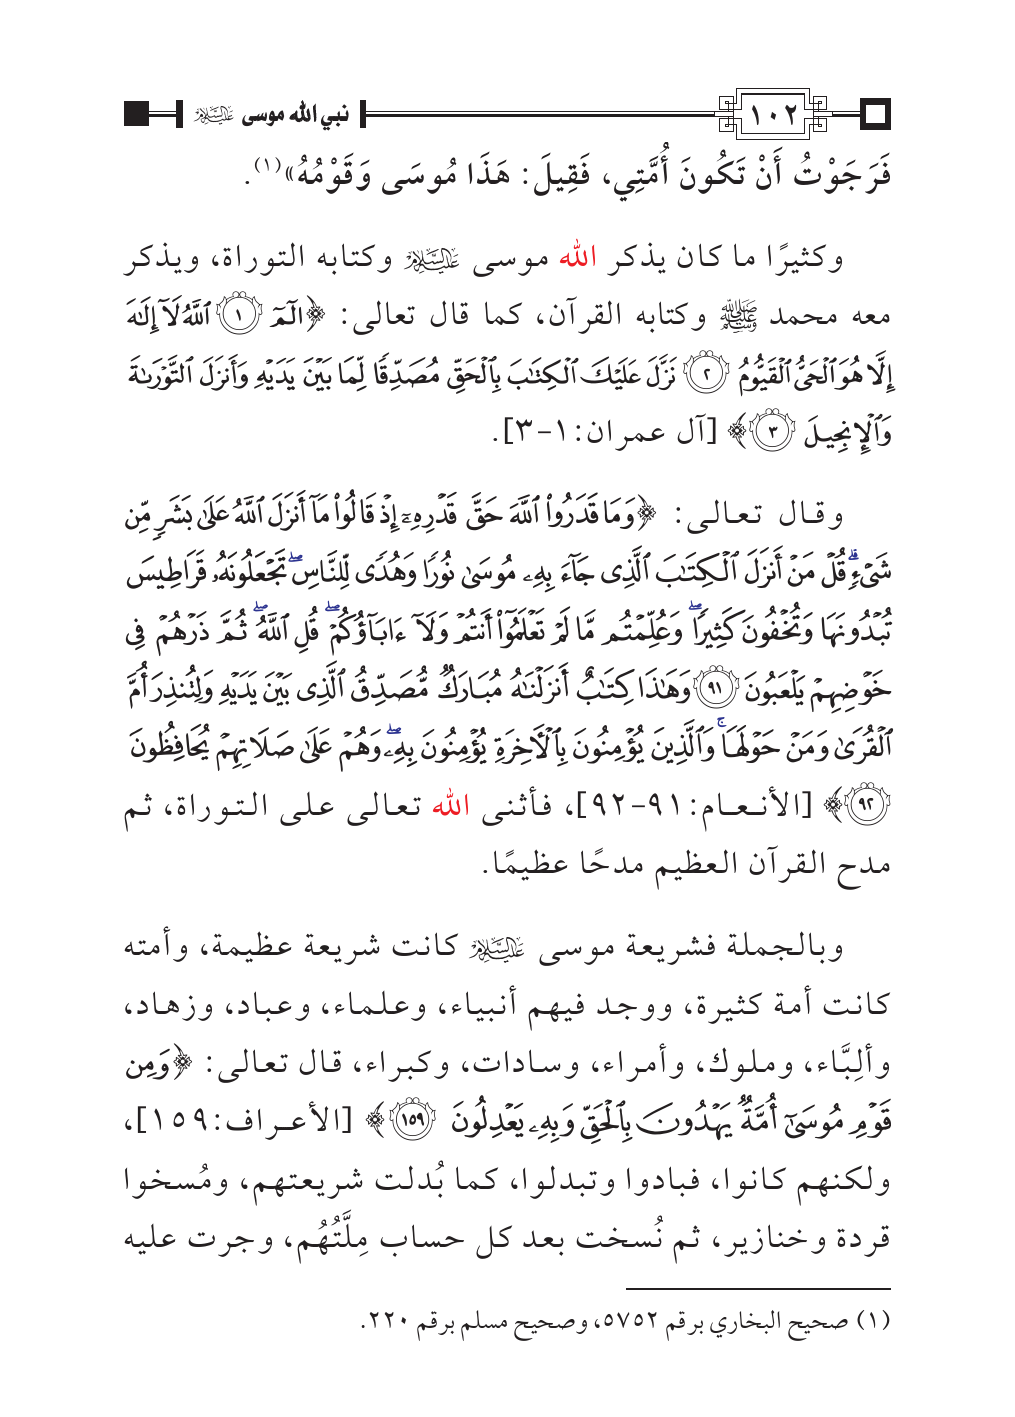 ١٠٢ نبي الله موسى عليه السلام
فَرَجَوْتُ أَنْ تَكُونَ أُمَّتِي، فَقِيلَ: هَذَا مُوسَى وَقَوْمُهُ»(١).
وكثيرًا ما كان يذكر الله موسى عليه السلام وكتابه التوراة، ويذكر
معه محمد ﷺ وكتابه القرآن، كما قال تعالى: ﴿الٓمٓ ١ ٱللَّهُ لَآ إِلَٰهَ
إِلَّا هُوَ ٱلْحَىُّ ٱلْقَيُّومُ ٢ نَزَّلَ عَلَيْكَ ٱلْكِتَٰبَ بِٱلْحَقِّ مُصَدِّقًا لِّمَا بَيْنَ يَدَيْهِ وَأَنزَلَ ٱلتَّوْرَىٰةَ
وَٱلْإِنجِيلَ ٣﴾ [آل عمران:١-٣].
وقال تعالى: ﴿وَمَا قَدَرُوا۟ ٱللَّهَ حَقَّ قَدْرِهِۦٓ إِذْ قَالُوا۟ مَآ أَنزَلَ ٱللَّهُ عَلَىٰ بَشَرٍ مِّن
شَىْءٍ ۗ قُلْ مَنْ أَنزَلَ ٱلْكِتَٰبَ ٱلَّذِى جَآءَ بِهِۦ مُوسَىٰ نُورًا وَهُدًى لِّلنَّاسِ ۖ تَجْعَلُونَهُۥ قَرَاطِيسَ
تُبْدُونَهَا وَتُخْفُونَ كَثِيرًا ۖ وَعُلِّمْتُم مَّا لَمْ تَعْلَمُوٓا۟ أَنتُمْ وَلَآ ءَابَآؤُكُمْ ۖ قُلِ ٱللَّهُ ۖ ثُمَّ ذَرْهُمْ فِى
خَوْضِهِمْ يَلْعَبُونَ ٩١ وَهَٰذَا كِتَٰبٌ أَنزَلْنَٰهُ مُبَارَكٌ مُّصَدِّقُ ٱلَّذِى بَيْنَ يَدَيْهِ وَلِتُنذِرَ أُمَّ
ٱلْقُرَىٰ وَمَنْ حَوْلَهَا ۚ وَٱلَّذِينَ يُؤْمِنُونَ بِٱلْأَخِرَةِ يُؤْمِنُونَ بِهِۦ ۖ وَهُمْ عَلَىٰ صَلَاتِهِمْ يُحَافِظُونَ
٩٢﴾ [الأنعام:٩١-٩٢]، فأثنى الله تعالى على التوراة، ثم
مدح القرآن العظيم مدحًا عظيمًا.
وبالجملة فشريعة موسى عليه السلام كانت شريعة عظيمة، وأمته
كانت أمة كثيرة، ووجد فيهم أنبياء، وعلماء، وعباد، وزهاد،
وألِبَّاء، وملوك، وأمراء، وسادات، وكبراء، قال تعالى: ﴿وَمِن
قَوْمِ مُوسَىٰٓ أُمَّةٌ يَهْدُونَ بِٱلْحَقِّ وَبِهِۦ يَعْدِلُونَ ١٥٩﴾ [الأعراف:١٥٩]،
ولكنهم كانوا، فبادوا وتبدلوا، كما بُدلت شريعتهم، ومُسخوا
قردة وخنازير، ثم نُسخت بعد كل حساب مِلَّتُهُم، وجرت عليه
(١) صحيح البخاري برقم ٥٧٥٢، وصحيح مسلم برقم ٢٢٠.